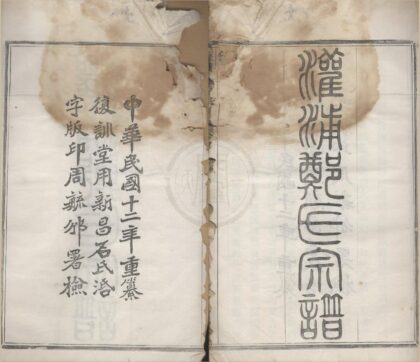 灌浦鄭氏宗譜
中華民國十二年重纂
復訓堂用新昌石氏活
字版印周毓邠署檢